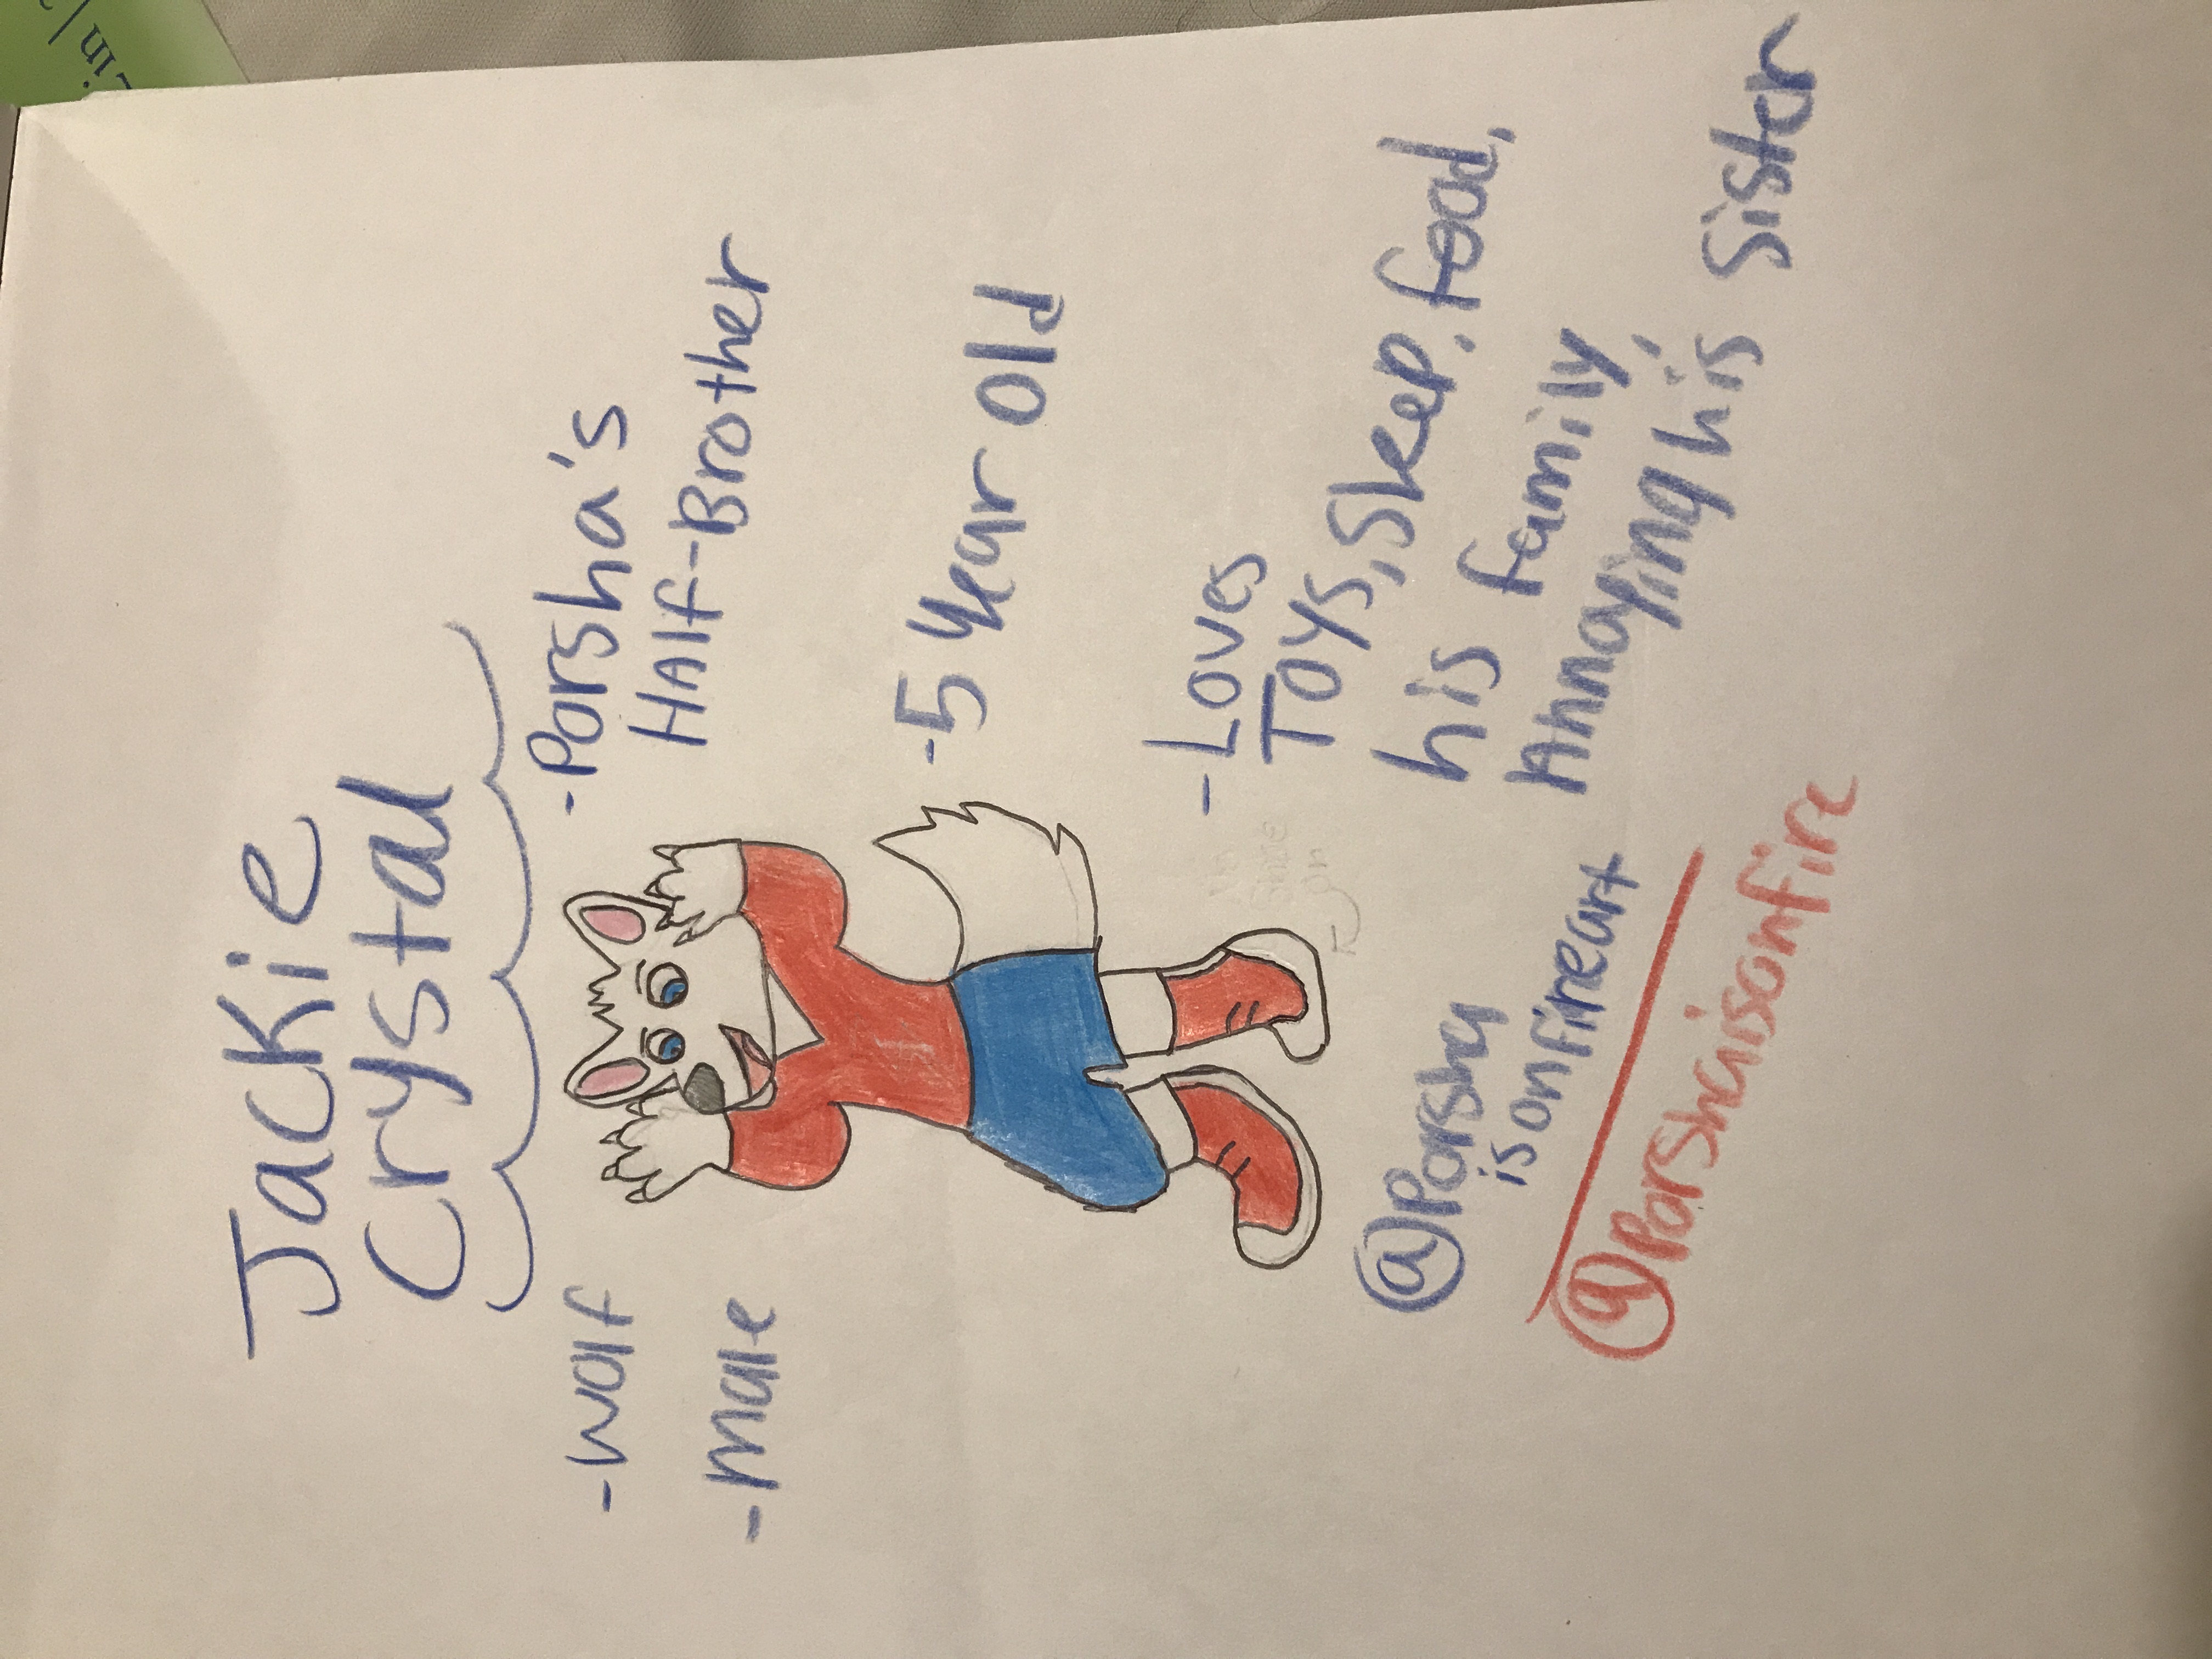 Jackie
Crystal
-Wolf
-male
-Porsha's
Half-Brother
-5 year old
-Loves
Toys, Sleep, food,
his family,
Annoying his sister
@Porsha
isonfireart
@Porshaisonfire